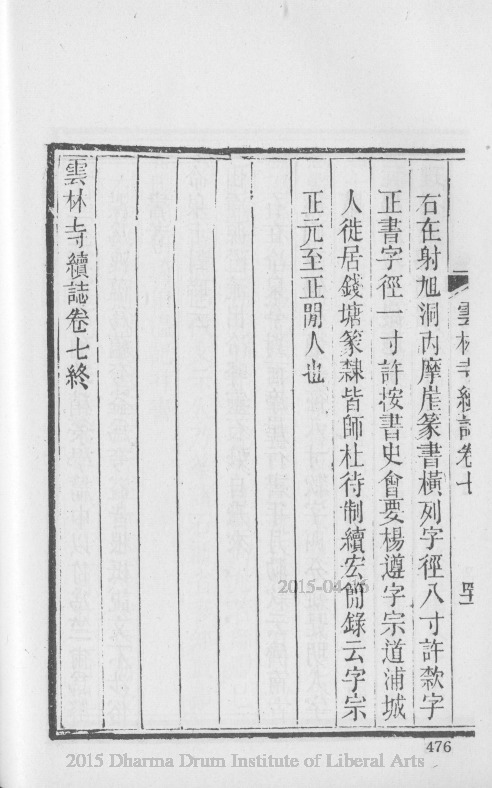 雲林寺續誌卷七
右在射旭洞內摩崖篆書橫列字徑八寸許欵字
正書字徑一寸許按書史會要楊遵字宗道浦城
人徙居錢塘篆隸皆師杜待制續宏簡錄云字宗
正元至正閒人也
雲林寺續誌卷七終
2015-04-16
476
2015 Dharma Drum Institute of Liberal Arts